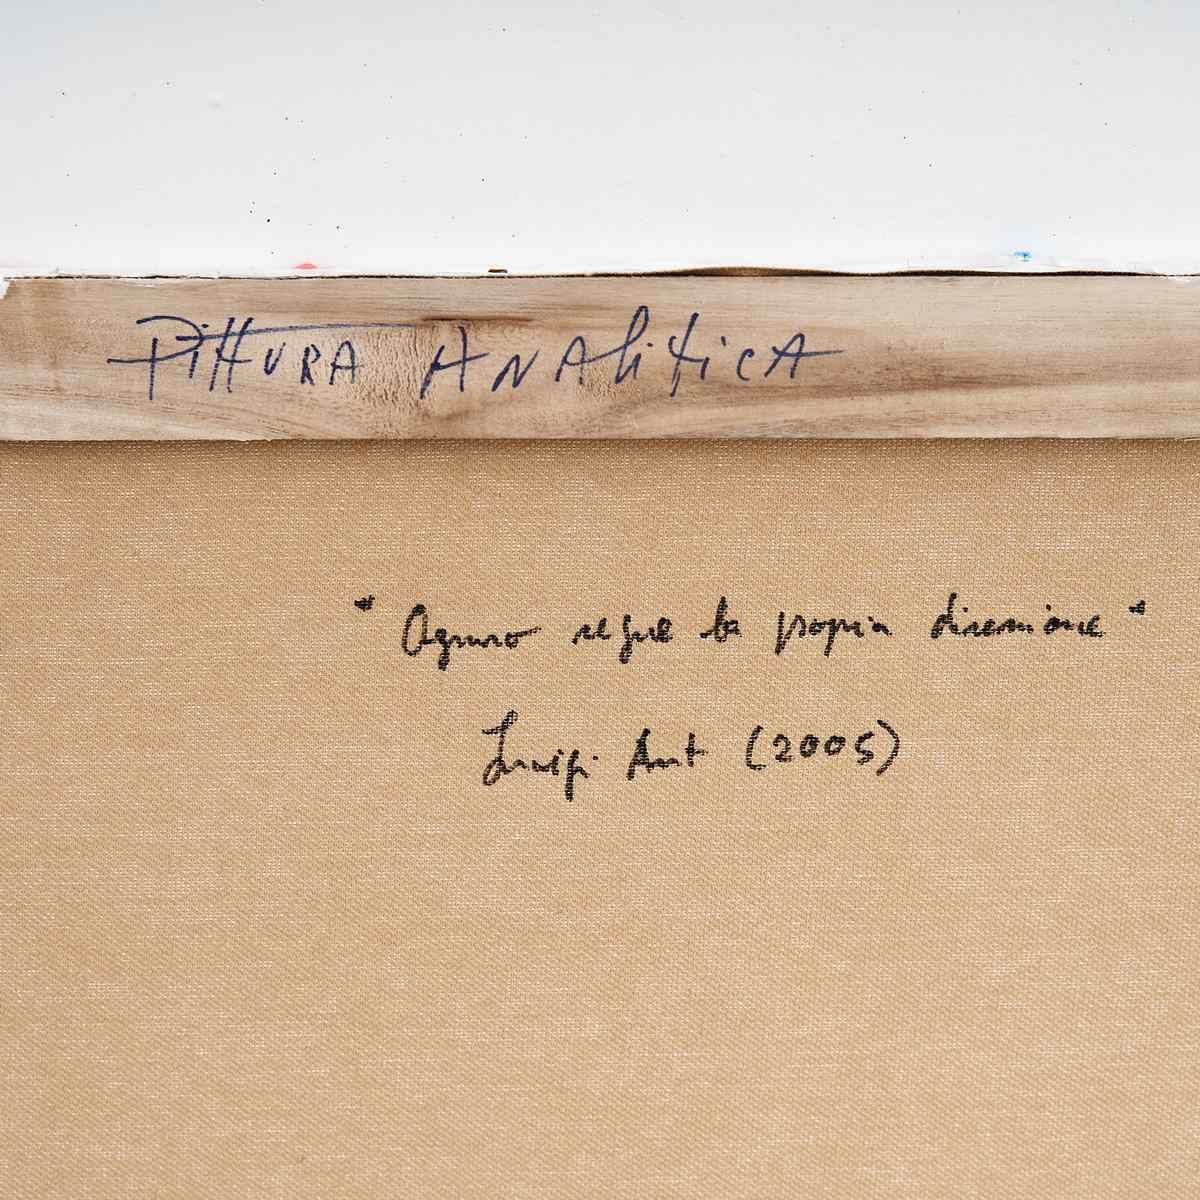 PittURA ANAliticA
"Ognuno segue la propria direzione"
Luigi Ant (2005)